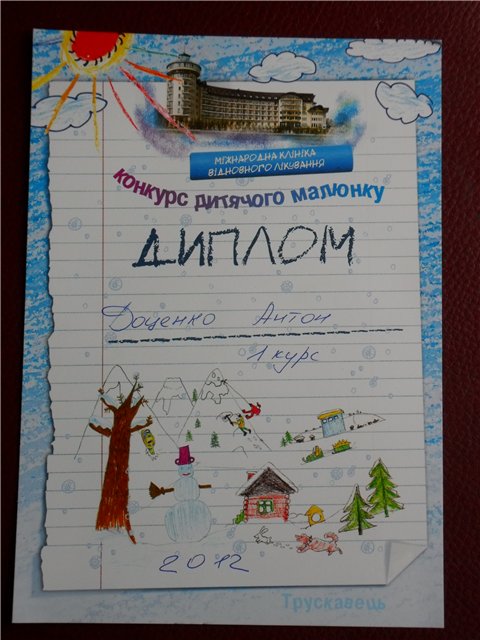 МІЖНАРОДНА КЛІНІКА
ВІДНОВНОГО ЛІКУВАННЯ
КОНКУРС ДИТЯЧОГО МАЛЮНКУ
ДИПЛОМ
Доценко Антон
1 курс
2012
Трускавець